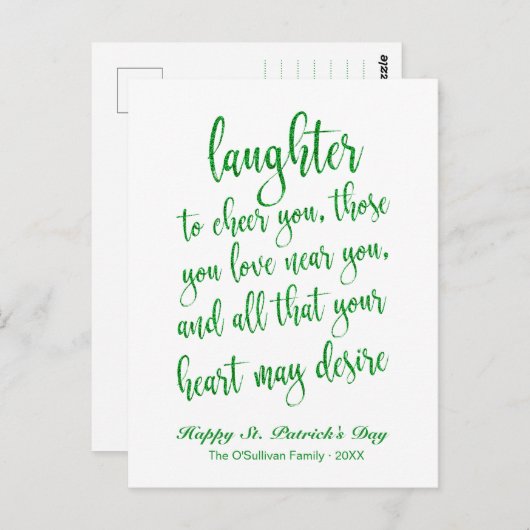 laughter
to cheer you, those
you love near you,
and all that your
heart may desire
Happy St. Patrick's Day
The O'Sullivan Family · 20XX